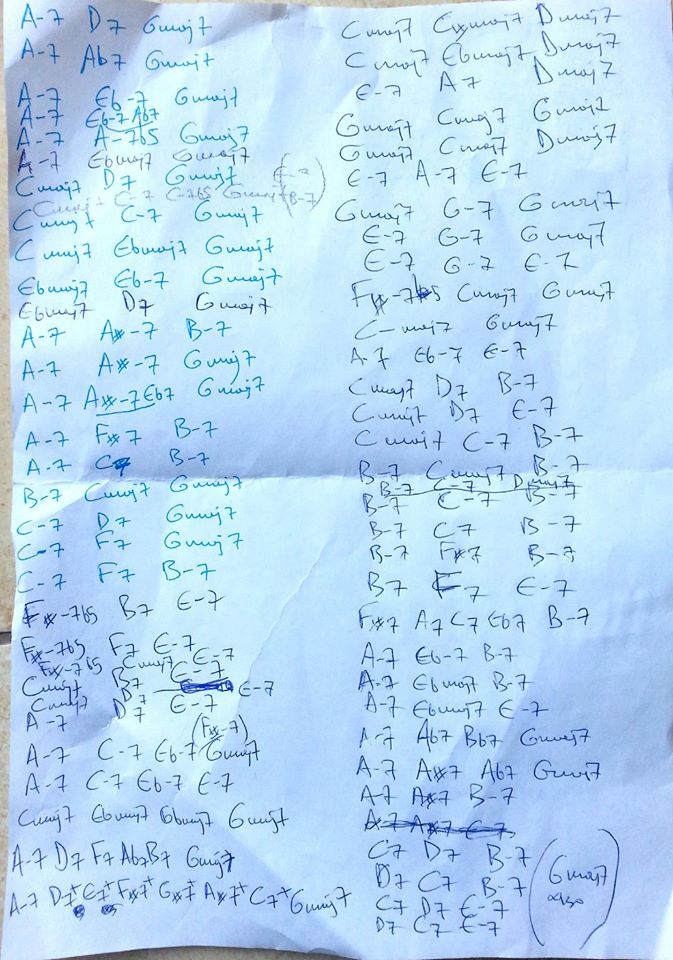 A-7 D7 Gmaj7
A-7 Ab7 Gmaj7
A-7 Eb-7 Gmaj7
A-7 Eb-7 Ab7
A-7 A-7b5 Gmaj7
A-7 Ebmaj7 Gmaj7
Cmaj7 D7 Gmaj7 (E-7
Cmaj7 C-7 C-7b5 Gmaj7 B-7)
Cmaj7 C-7 Gmaj7
Cmaj7 Ebmaj7 Gmaj7
Ebmaj7 Eb-7 Gmaj7
Ebmaj7 D7 Gmaj7
A-7 A#-7 B-7
A-7 A#-7 Gmaj7
A-7 A#-7 Eb7 Gmaj7
A-7 F#7 B-7
A-7 C7 B-7
B-7 Cmaj7 Gmaj7
C-7 D7 Gmaj7
C-7 F7 Gmaj7
C-7 F7 B-7
F#-7b5 B7 E-7
F#-7b5 F7 E-7
F#-7b5 Cmaj7 E-7
Cmaj7 B7 E-7
Cmaj7 B7 E-7
A-7 D7 E-7
(F#-7)
A-7 C-7 Eb-7 Gmaj7
A-7 C-7 Eb-7 E-7
Cmaj7 Ebmaj7 Gbmaj7 Gmaj7
A-7 D7 F7 Ab7 B7 Gmaj7
A-7 D7+ E7+ F#7+ G#7+ A#7+ C7+ Gmaj7
Cmaj7 C#maj7 Dmaj7
Cmaj7 Ebmaj7 Dmaj7
E-7 A7 Dmaj7
Gmaj7 Cmaj7 Gmaj7
Gmaj7 Cmaj7 Dmaj7
E-7 A-7 E-7
Gmaj7 G-7 Gmaj7
E-7 G-7 Gmaj7
E-7 G-7 E-7
F#-7b5 Cmaj7 Gmaj7
C-maj7 Gmaj7
A-7 Eb-7 E-7
Cmaj7 D7 B-7
Cmaj7 D7 E-7
Cmaj7 C-7 B-7
B-7 Cmaj7 B-7
B-7 C-7 Dmaj7
B-7 C-7 B-7
B-7 C7 B-7
B-7 F#7 B-7
B7 F7 E-7
F#7 A7 C7 Eb7 B-7
A-7 Eb-7 B-7
A-7 Ebmaj7 B-7
A-7 Ebmaj7 E-7
A-7 Ab7 Bb7 Gmaj7
A-7 A#7 Ab7 Gmaj7
A-7 A#7 B-7
A-7 A#7 E-7
C7 D7 B-7
D7 C7 B-7 (Gmaj7
C7 D7 E-7 also)
D7 C7 E-7